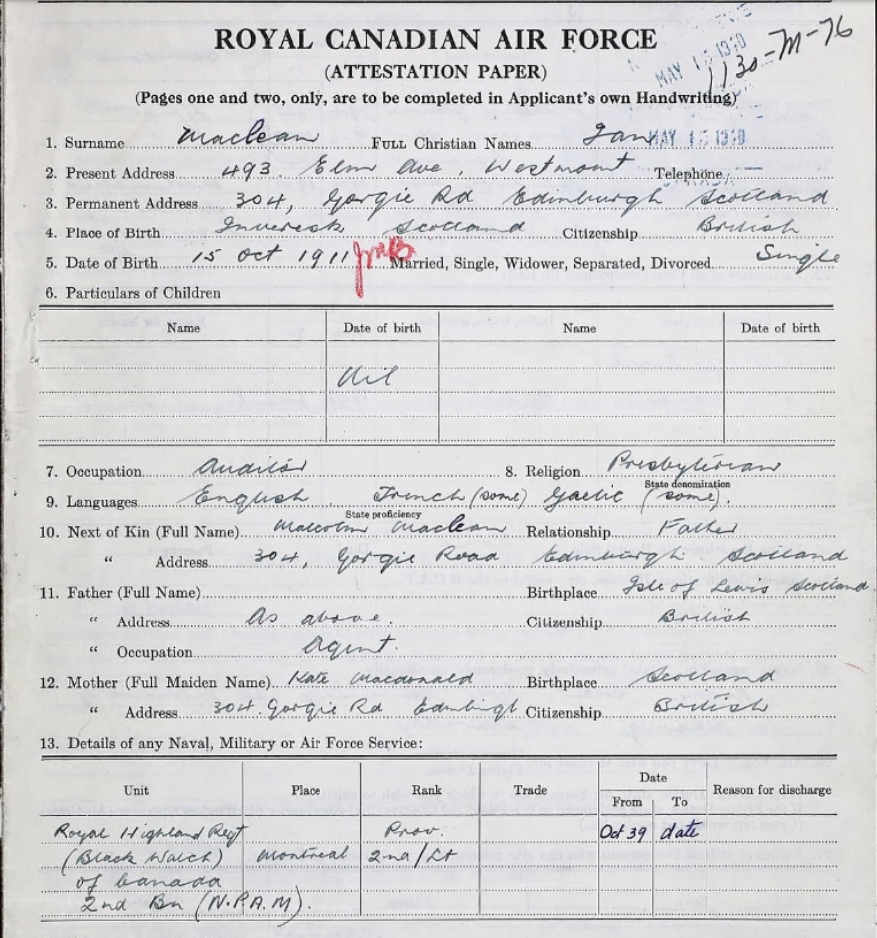 ROYAL CANADIAN AIR FORCE
(ATTESTATION PAPER)
MAY 15 1940
1130-M-76
(Pages one and two, only, are to be completed in Applicant's own Handwriting)
1. Surname Maclean FULL Christian Names Ian MAY 15 1940
2. Present Address 493. Elm Ave, Westmount Telephone
3. Permanent Address 304, Gorgie Rd Edinburgh Scotland
4. Place of Birth Inveresk Scotland Citizenship British
5. Date of Birth 15 Oct 1911 Married, Single, Widower, Separated, Divorced Single
6. Particulars of Children
Name Date of birth Name Date of birth
Nil
7. Occupation Auditor 8. Religion Presbyterian
State denomination
9. Languages English French (some) Gaelic (some).
State proficiency
10. Next of Kin (Full Name) Malcolm Maclean Relationship Father
" Address 304, Gorgie Road Edinburgh. Scotland
11. Father (Full Name) Birthplace Isle of Lewis Scotland
" Address As above. Citizenship British
" Occupation Agent.
12. Mother (Full Maiden Name) Kate Macdonald Birthplace Scotland
" Address 304. Gorgie Rd Edinburgh Citizenship British
13. Details of any Naval, Military or Air Force Service:
Unit Place Rank Trade Date Reason for discharge
From To
Royal Highland Regt Prov. Oct 39 date
(Black Watch) Montreal 2nd/Lt
of Canada
2nd Bn (N.P.A.M).